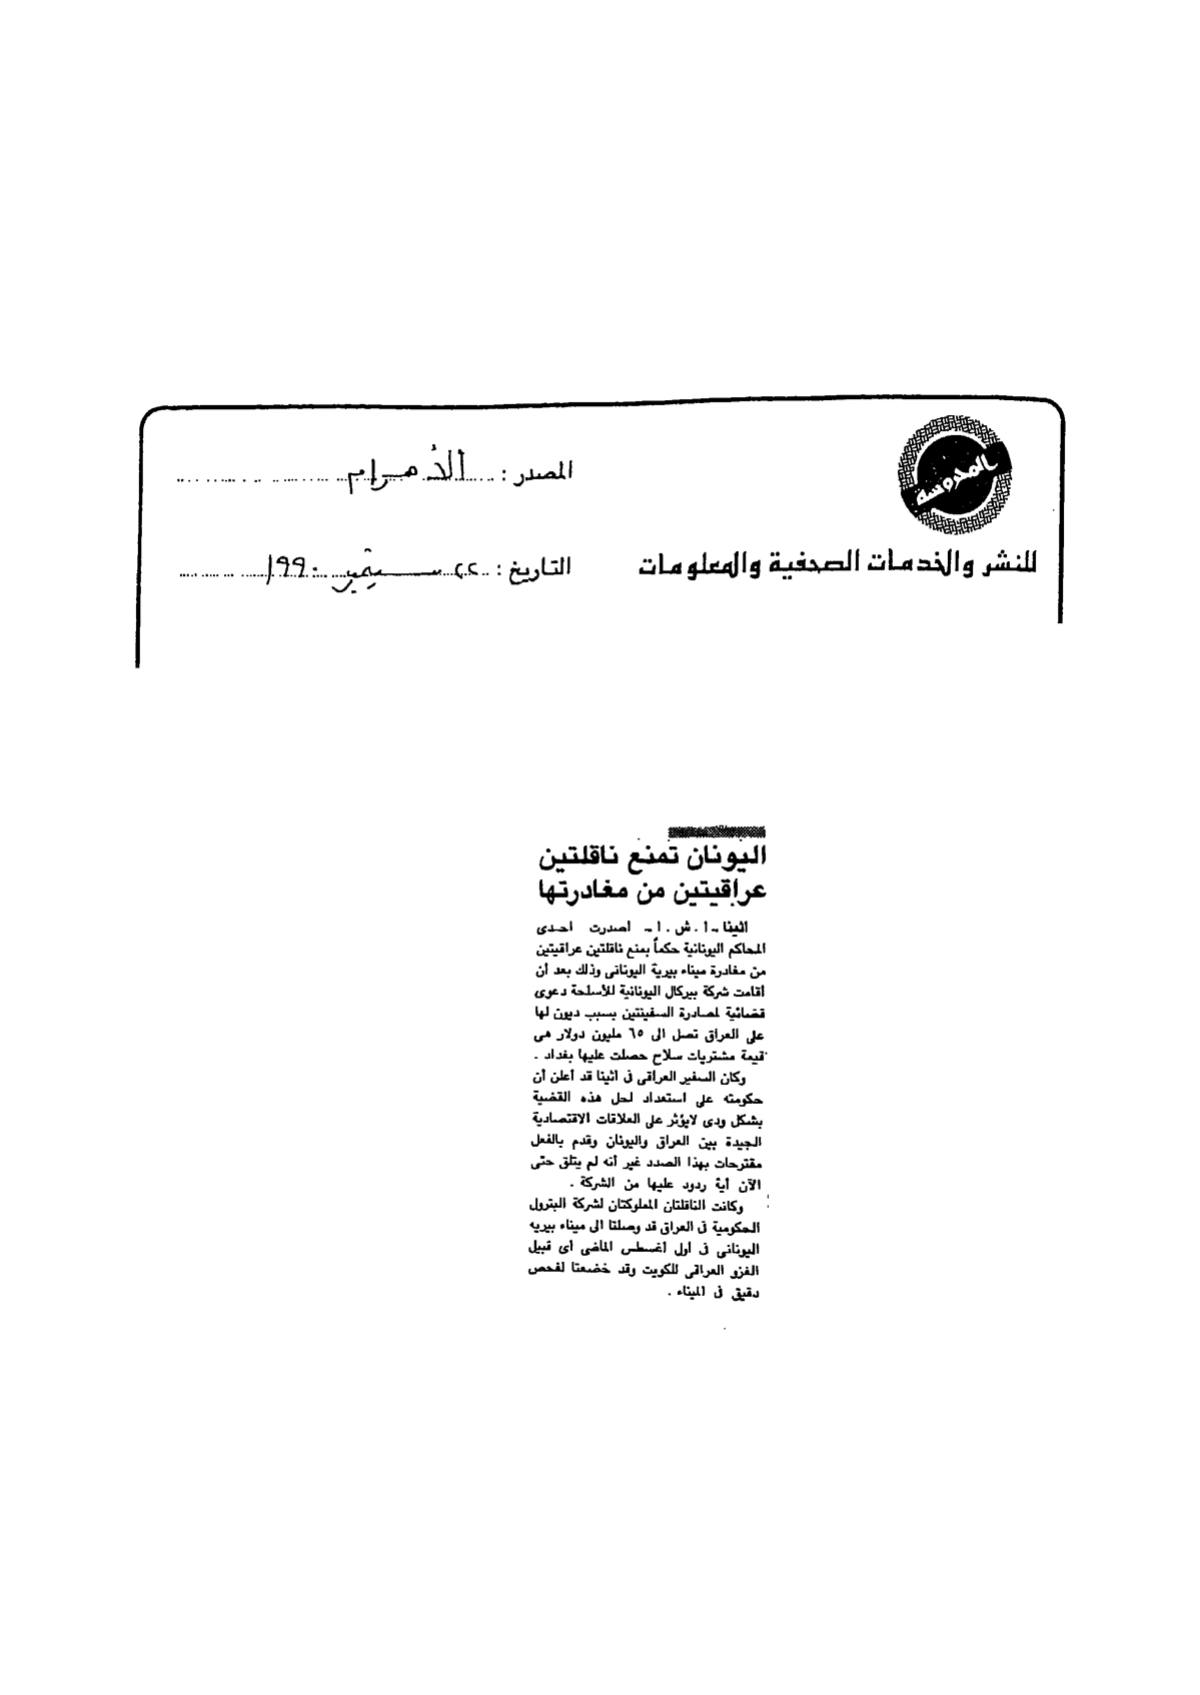 المحروسة
للنشر والخدمات الصحفية والمعلومات
المصدر : الأهرام
التاريخ : ٢٢ سبتمبر ١٩٩٠
اليونان تمنع ناقلتين
عراقيتين من مغادرتها
اثينا - ا . ش . ا - اصدرت احدى
المحاكم اليونانية حكماً بمنع ناقلتين عراقيتين
من مغادرة ميناء بيرية اليونانى وذلك بعد أن
أقامت شركة بيركال اليونانية للأسلحة دعوى
قضائية لمصادرة السفينتين بسبب ديون لها
على العراق تصل الى ٦٥ مليون دولار هى
قيمة مشتريات سلاح حصلت عليها بغداد .
وكان السفير العراقى فى اثينا قد أعلن أن
حكومته على استعداد لحل هذه القضية
بشكل ودى لايؤثر على العلاقات الاقتصادية
الجيدة بين العراق واليونان وقدم بالفعل
مقترحات بهذا الصدد غير أنه لم يتلق حتى
الآن أية ردود عليها من الشركة .
وكانت الناقلتان المملوكتان لشركة البترول
الحكومية فى العراق قد وصلتا الى ميناء بيريه
اليونانى فى أول أغسطس الماضى أى قبيل
الغزو العراقى للكويت وقد خضعتا لفحص
دقيق فى الميناء .